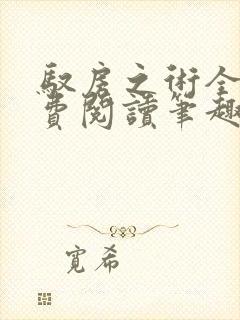 馭房之術全
費閱讀筆趣
寬希